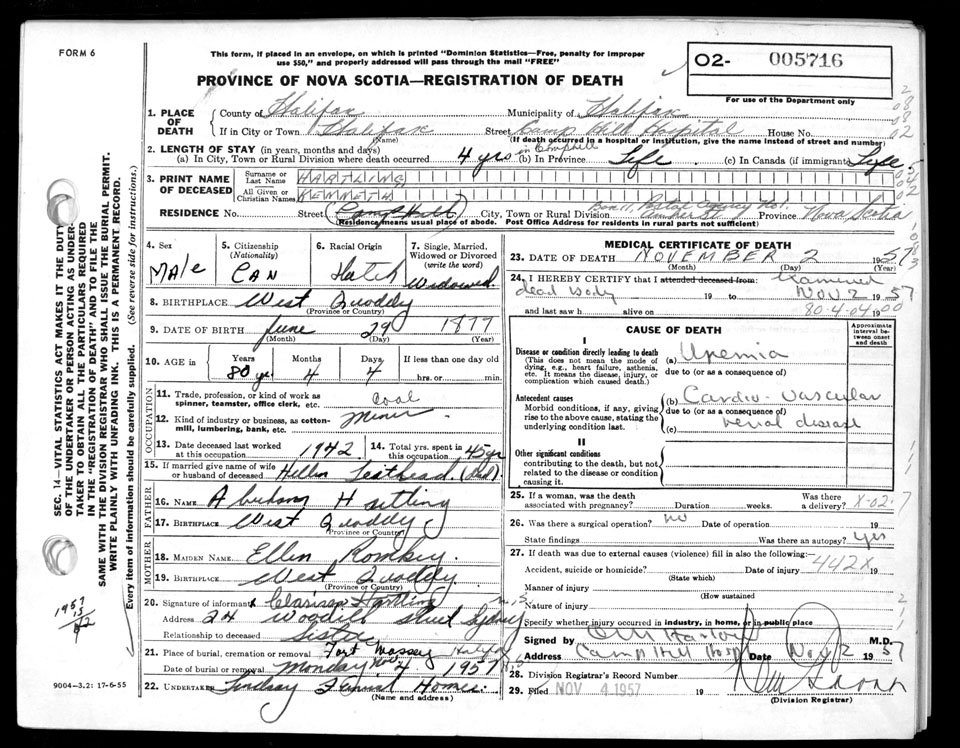 FORM 6
This form, if placed in an envelope, on which is printed "Dominion Statistics—Free, penalty for improper
use $50," and properly addressed will pass through the mail "FREE"
PROVINCE OF NOVA SCOTIA—REGISTRATION OF DEATH
02- 005716
For use of the Department only
1. PLACE OF DEATH
County of Halifax Municipality of Halifax
If in City or Town Halifax Street Camp Hill Hospital House No.
(Name) (If death occurred in a hospital or institution, give the name instead of street and number)
2. LENGTH OF STAY (in years, months and days)
(a) In City, Town or Rural Division where death occurred 4 yrs in Camp Hill (b) In Province Life (c) In Canada (if immigrant) Life
3. PRINT NAME OF DECEASED
Surname or Last Name HARTLING
All Given or Christian Names KENNETH
RESIDENCE No. Street (Camp Hill) City, Town or Rural Division Box 11, Postal Agency No 1, Province Nova Scotia
(Residence means usual place of abode. Post Office Address for residents in rural parts not sufficient)
4. Sex Male
5. Citizenship (Nationality) Can
6. Racial Origin
7. Single, Married, Widowed or Divorced (write the word) Widowed
8. BIRTHPLACE West Quoddy
(Province or Country)
9. DATE OF BIRTH June 29 1877
(Month) (Day) (Year)
10. AGE in Years Months Days If less than one day old
80 yrs 4 4 hrs. or min.
OCCUPATION
11. Trade, profession, or kind of work as spinner, teamster, office clerk, etc. Coal
12. Kind of industry or business, as cotton-mill, lumbering, bank, etc. Miner
13. Date deceased last worked at this occupation 1942 14. Total yrs. spent in this occupation 45 yr
15. If married give name of wife or husband of deceased Hellen (Dcd).
FATHER
16. NAME Hartling
17. BIRTHPLACE West Quoddy
(Province or Country)
MOTHER
18. MAIDEN NAME Ellen Romkey.
19. BIRTHPLACE West Quoddy.
(Province or Country)
20. Signature of informant Hartling
Address 24 Street Sydney N.S.
Relationship to deceased Sister
21. Place of burial, cremation or removal Fort Massey Halifax
Date of burial or removal Monday Nov 4 1957 N.S.
22. UNDERTAKER Lindsay Funeral Home.
(Name and address)
MEDICAL CERTIFICATE OF DEATH
23. DATE OF DEATH NOVEMBER 2 1957
(Month) (Day) (Year)
24. I HEREBY CERTIFY that I attended deceased from: examined
dead body 19 to Nov 2 1957
and last saw h alive on 80-4-04 00
CAUSE OF DEATH
Approximate interval between onset and death
I
Disease or condition directly leading to death
(This does not mean the mode of dying, e.g., heart failure, asthenia, etc. It means the disease, injury, or complication which caused death.)
(a) Uremia
due to (or as a consequence of)
Antecedent causes
Morbid conditions, if any, giving rise to the above cause, stating the underlying condition last.
(b) Cardio-vascular
due to (or as a consequence of)
(c) renal disease
II
Other significant conditions
contributing to the death, but not related to the disease or condition causing it.
25. If a woman, was the death associated with pregnancy? Duration weeks. Was there a delivery? X-02-7
26. Was there a surgical operation? no Date of operation 19
State findings Was there an autopsy? yes
27. If death was due to external causes (violence) fill in also the following:
Accident, suicide or homicide? Date of injury 19
442X
(State which)
Manner of injury
(How sustained)
Nature of injury
Specify whether injury occurred in industry, in home, or in public place
Signed by M.D.
Address Camp Hill Hosp Date Nov 2 1957
28. Division Registrar's Record Number
29. Filed NOV 4 1957 19
(Division Registrar)
SEC. 14—VITAL STATISTICS ACT MAKES IT THE DUTY
OF THE UNDERTAKER OR PERSON ACTING AS UNDER-
TAKER TO OBTAIN ALL THE PARTICULARS REQUIRED
IN THE "REGISTRATION OF DEATH" AND TO FILE THE
SAME WITH THE DIVISION REGISTRAR WHO SHALL ISSUE THE BURIAL PERMIT.
WRITE PLAINLY WITH UNFADING INK. THIS IS A PERMANENT RECORD.
Every item of information should be carefully supplied. (See reverse side for instructions.)
1957
15
9004-3.2: 17-6-55